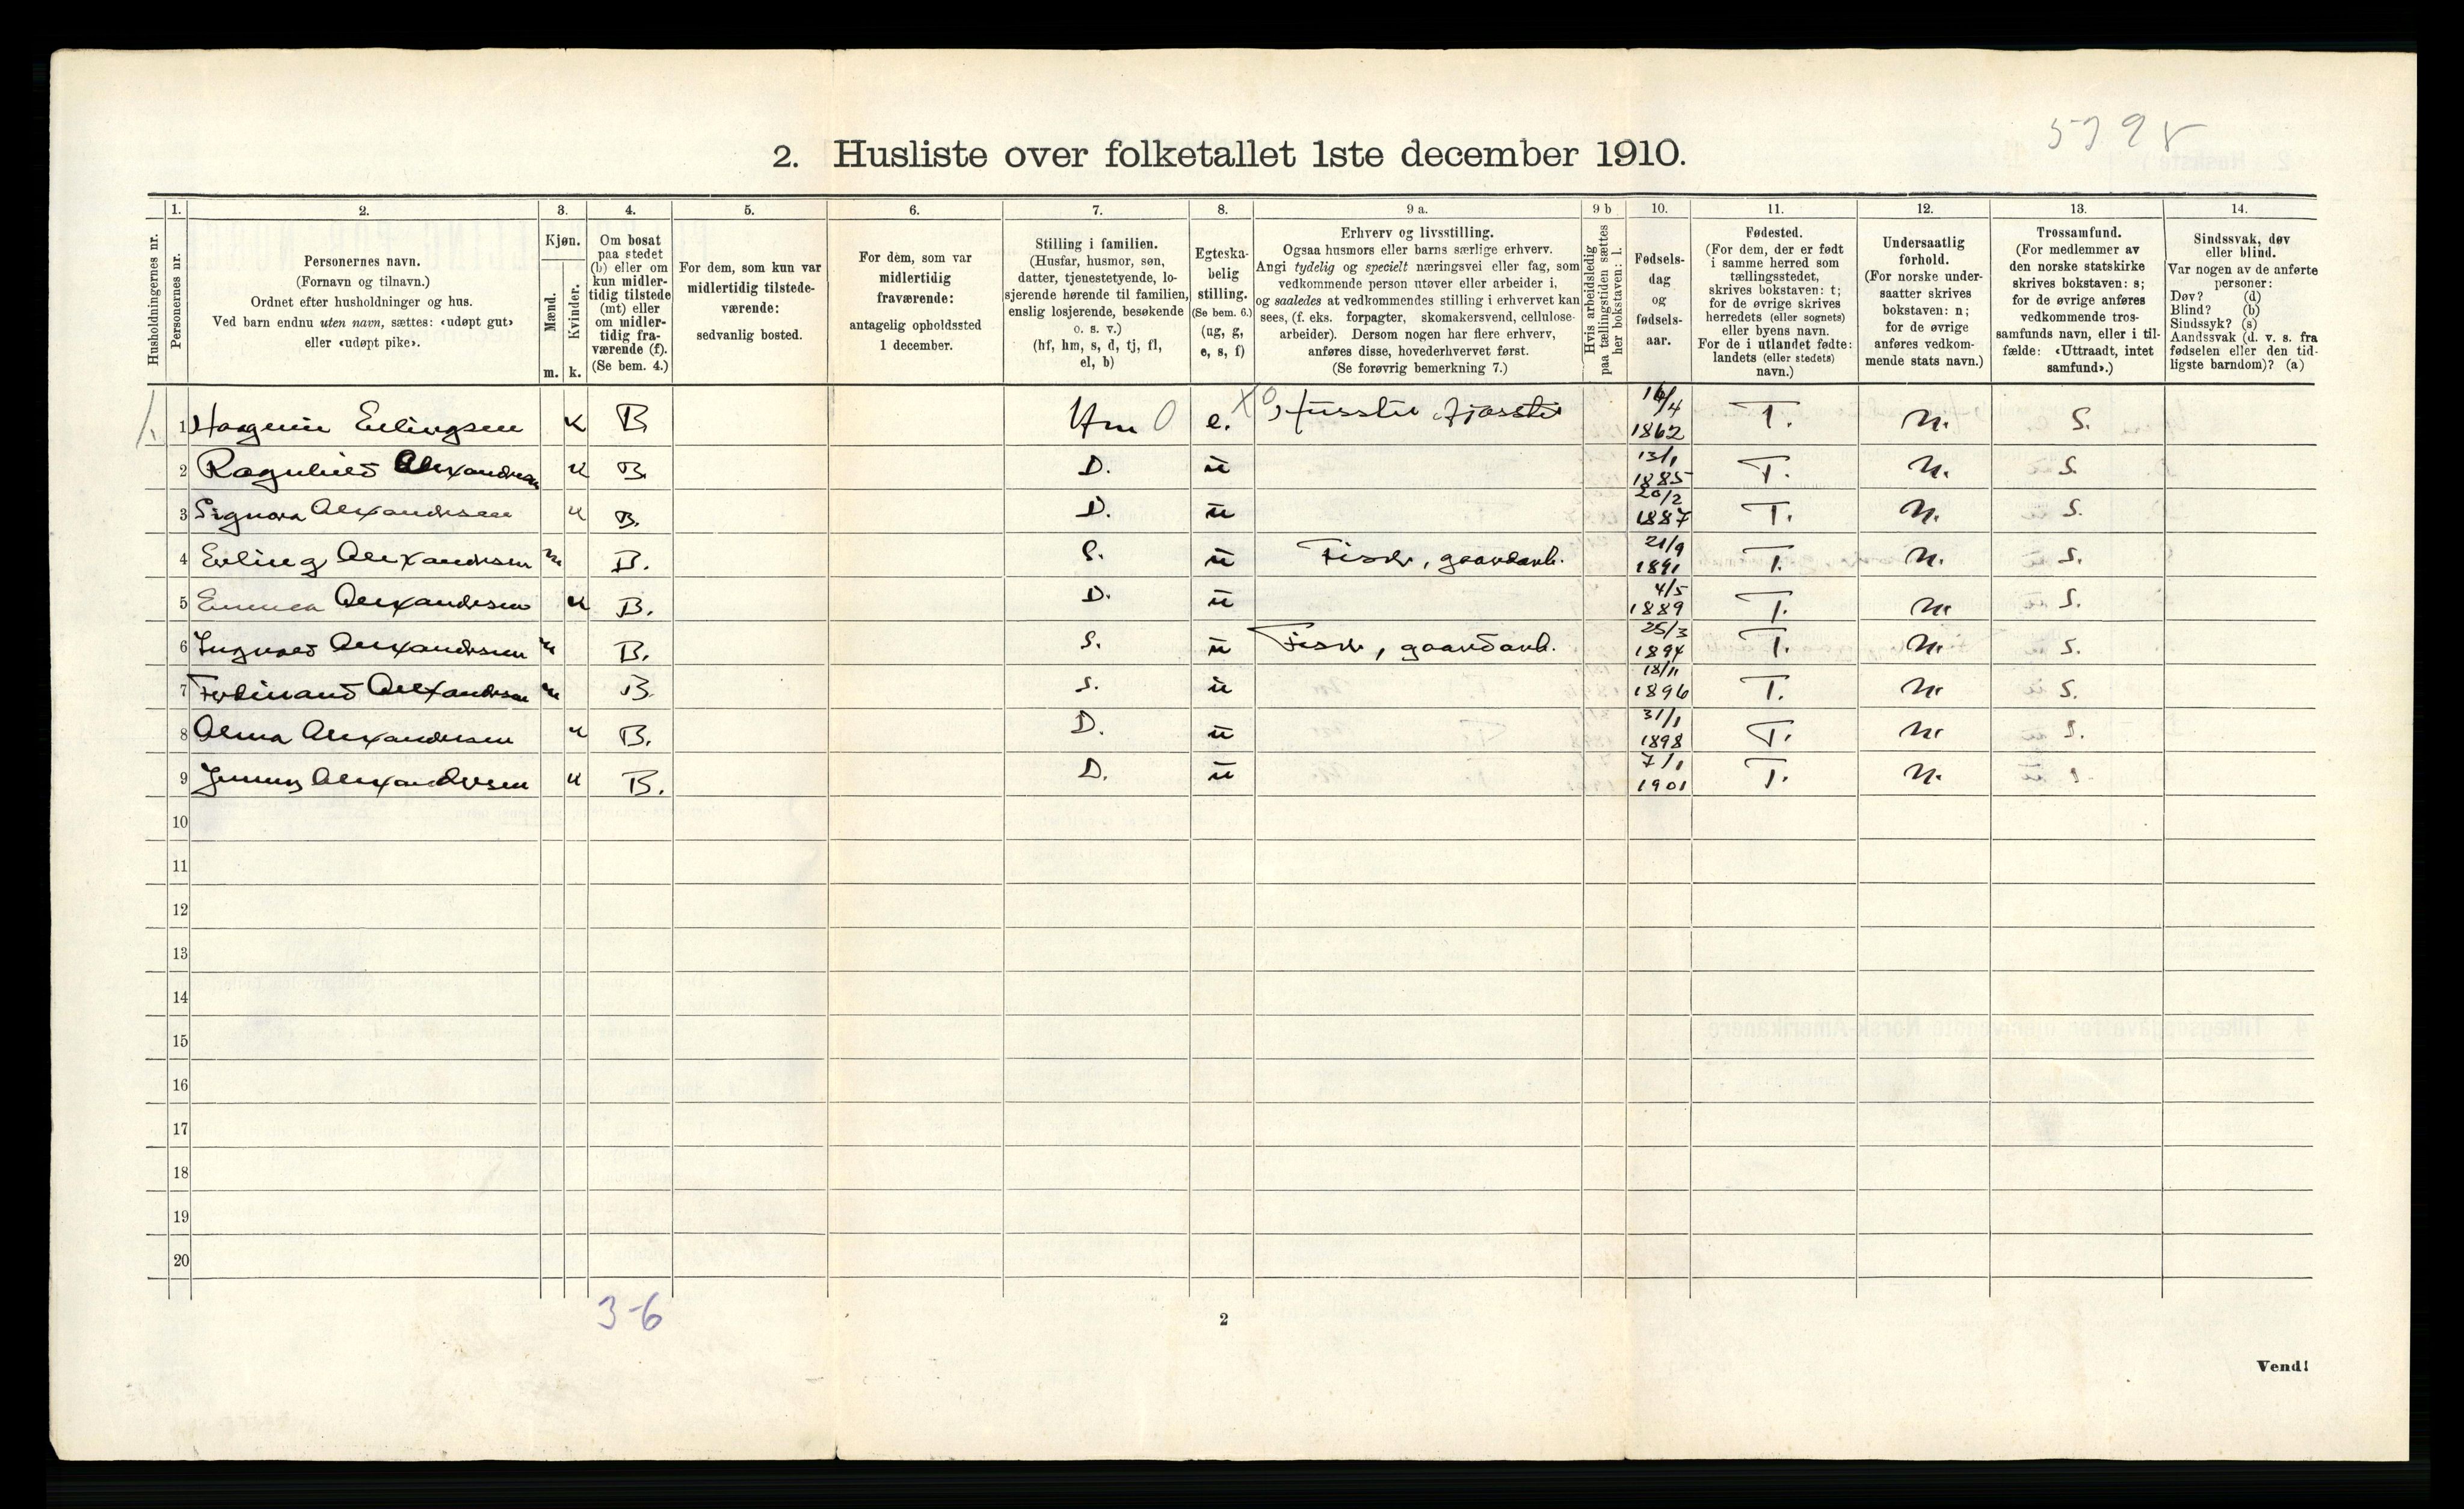 5798
2. Husliste over folketallet 1ste december 1910.
Husholdningernes nr.
1.
Personernes nr.
2.
Personernes navn.
(Fornavn og tilnavn.)
Ordnet efter husholdninger og hus.
Ved barn endnu uten navn, sættes: «udøpt gut»
eller «udøpt pike».
3.
Kjøn.
Mænd.
Kvinder.
m. k.
4.
Om bosat
paa stedet
(b) eller om
kun midler-
tidig tilstede
(mt) eller
om midler-
tidig fra-
værende (f).
(Se bem. 4.)
5.
For dem, som kun var
midlertidig tilstede-
værende:
sedvanlig bosted.
6.
For dem, som var
midlertidig
fraværende:
antagelig opholdssted
1 december.
7.
Stilling i familien.
(Husfar, husmor, søn,
datter, tjenestetyende, lo-
sjerende hørende til familien,
enslig losjerende, besøkende
o. s. v.)
(hf, hm, s, d, tj, fl,
el, b)
8.
Egteska-
belig
stilling.
(Se bem. 6.)
(ug, g,
e, s, f)
9 a.
Erhverv og livsstilling.
Ogsaa husmors eller barns særlige erhverv.
Angi tydelig og specielt næringsvei eller fag, som
vedkommende person utøver eller arbeider i,
og saaledes at vedkommendes stilling i erhvervet kan
sees, (f. eks. forpagter, skomakersvend, cellulose-
arbeider). Dersom nogen har flere erhverv,
anføres disse, hovederhvervet først.
(Se forøvrig bemerkning 7.)
9 b
Hvis arbeidsledig
paa tællingstiden sættes
her bokstaven: l.
10.
Fødsels-
dag
og
fødsels-
aar.
11.
Fødested.
(For dem, der er født
i samme herred som
tællingsstedet,
skrives bokstaven: t;
for de øvrige skrives
herredets (eller sognets)
eller byens navn.
For de i utlandet fødte:
landets (eller stedets)
navn.)
12.
Undersaatlig
forhold.
(For norske under-
saatter skrives
bokstaven: n;
for de øvrige
anføres vedkom-
mende stats navn.)
13.
Trossamfund.
(For medlemmer av
den norske statskirke
skrives bokstaven: s;
for de øvrige anføres
vedkommende tros-
samfunds navn, eller i til-
fælde: «Uttraadt, intet
samfund».)
14.
Sindssvak, døv
eller blind.
Var nogen av de anførte
personer:
Døv? (d)
Blind? (b)
Sindssyk? (s)
Aandssvak (d. v. s. fra
fødselen eller den tid-
ligste barndom)? (a)
1. 1 Erlingsen K B Hm 0 e. X0 16/4 1862 T. N. S.
2 Ragnhild Alexandersen K B. D. u 13/1 1885 T. N. S.
3 Signora Alexandersen K B. D. u 20/2 1887 T. N. S.
4 Erling Alexandersen m B. S. u Fisker, gaardarb. 21/9 1891 T. N. S.
5 Emma Alexandersen K B. D. u 4/5 1889 T. N. S.
6 Ingvald Alexandersen m B. S. u Fisker, gaardarb. 25/3 1894 T. N. S.
7 Ferdinand Alexandersen m B S. u 18/11 1896 T. N. S.
8 Alma Alexandersen K B. D. u 31/1 1898 T. N. S.
9 Jenny Alexandersen K B. D. u 7/1 1901 T. N. S
10
11
12
13
14
15
16
17
18
19
20
3-6
2
Vend!